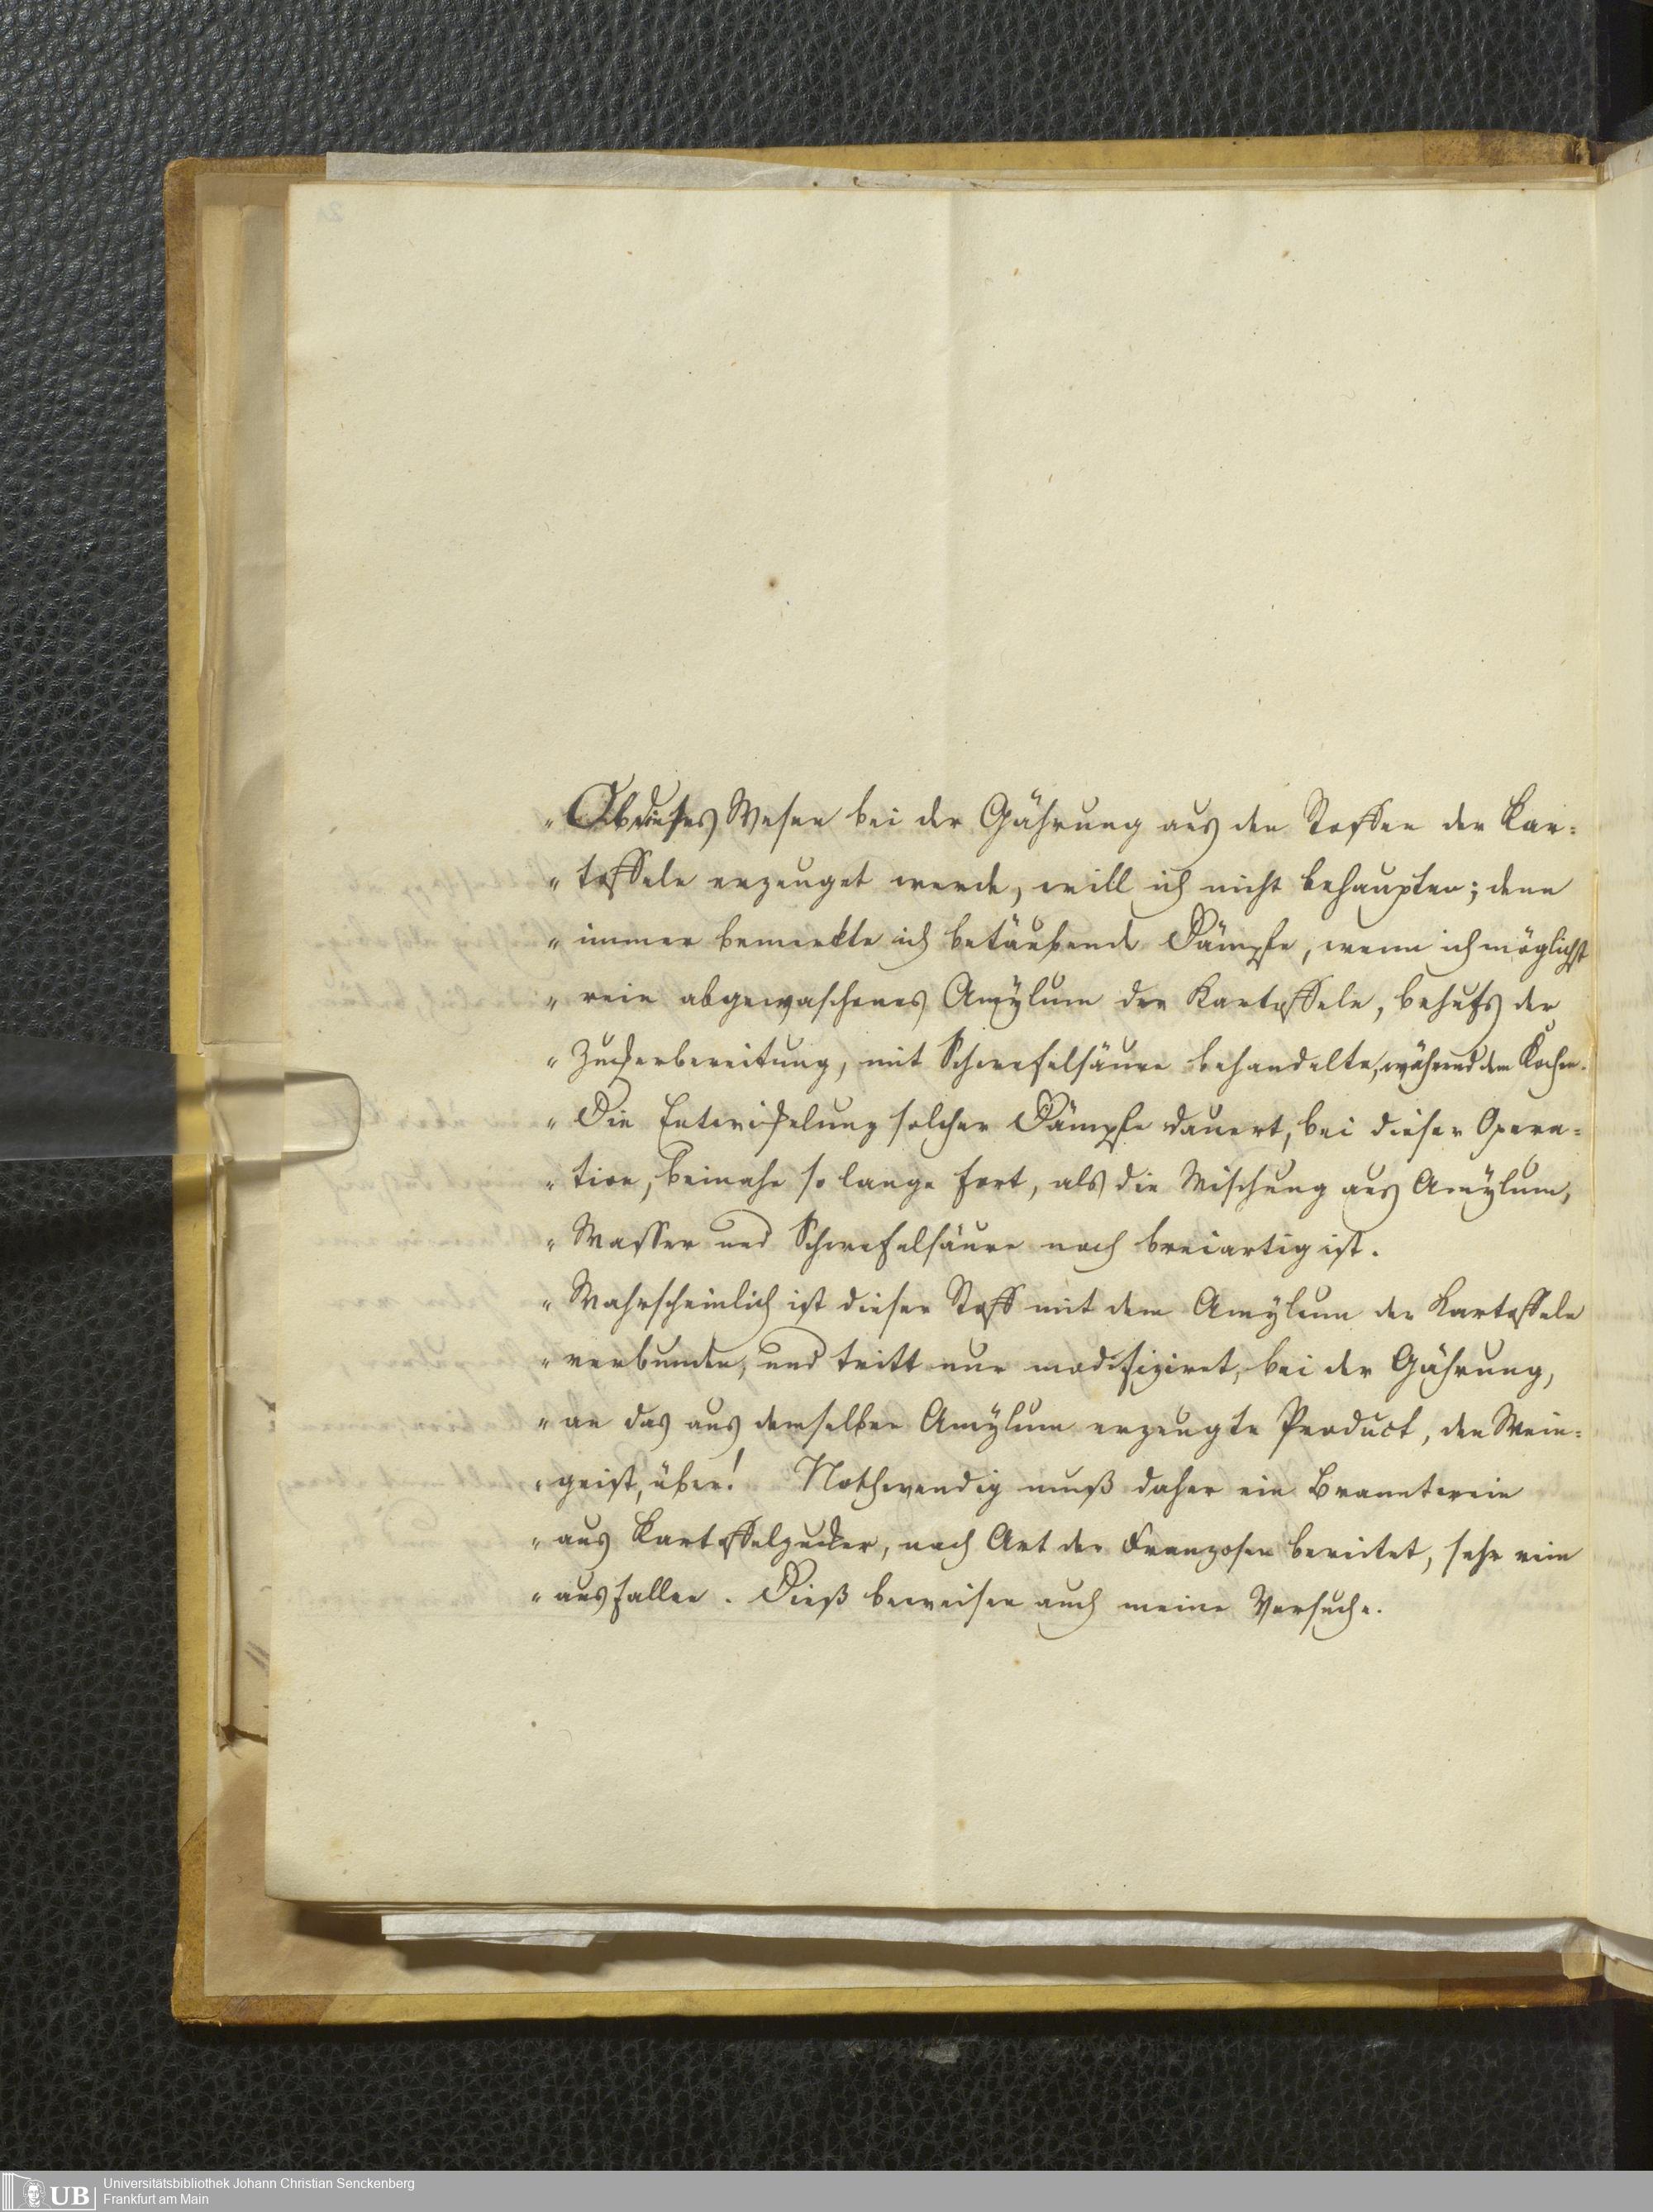 „ Ob dieses Wesen bei der Gährung aus den Stoffen der Kar=
„ toffeln erzeuget werde, will ich nicht behaupten; denn
„ immer bemerkte ich betäubende Dämpfe, wenn ich möglichst
„ rein abgewaschenes Amÿlum der Kartoffeln, behufs der
„ Zuckerbereitung, mit Schwefelsäure behandelte, während dem Kochen.
„ Die Entwickelung solcher Dämpfe dauert, bei dieser Opera=
„ tion, beinahe so lange fort, als die Mischung aus Amÿlum,
„ Wasser und Schwefelsäure noch breiartig ist.
„ Wahrscheinlich ist dieser Stoff mit dem Amÿlum der Kartoffeln
„ verbunden, und tritt nur modifiziret, bei der Gährung,
„ an das aus demselben Amÿlum erzeugte Product, den Wein=
„ geist, über! Nothwendig muß daher ein Branntwein
„ aus Kartoffelzucker, nach Art der Franzosen bereitet, sehr rein
„ ausfallen. Dieß beweisen auch meine Versuche.
UB Universitätsbibliothek Johann Christian Senckenberg
Frankfurt am Main